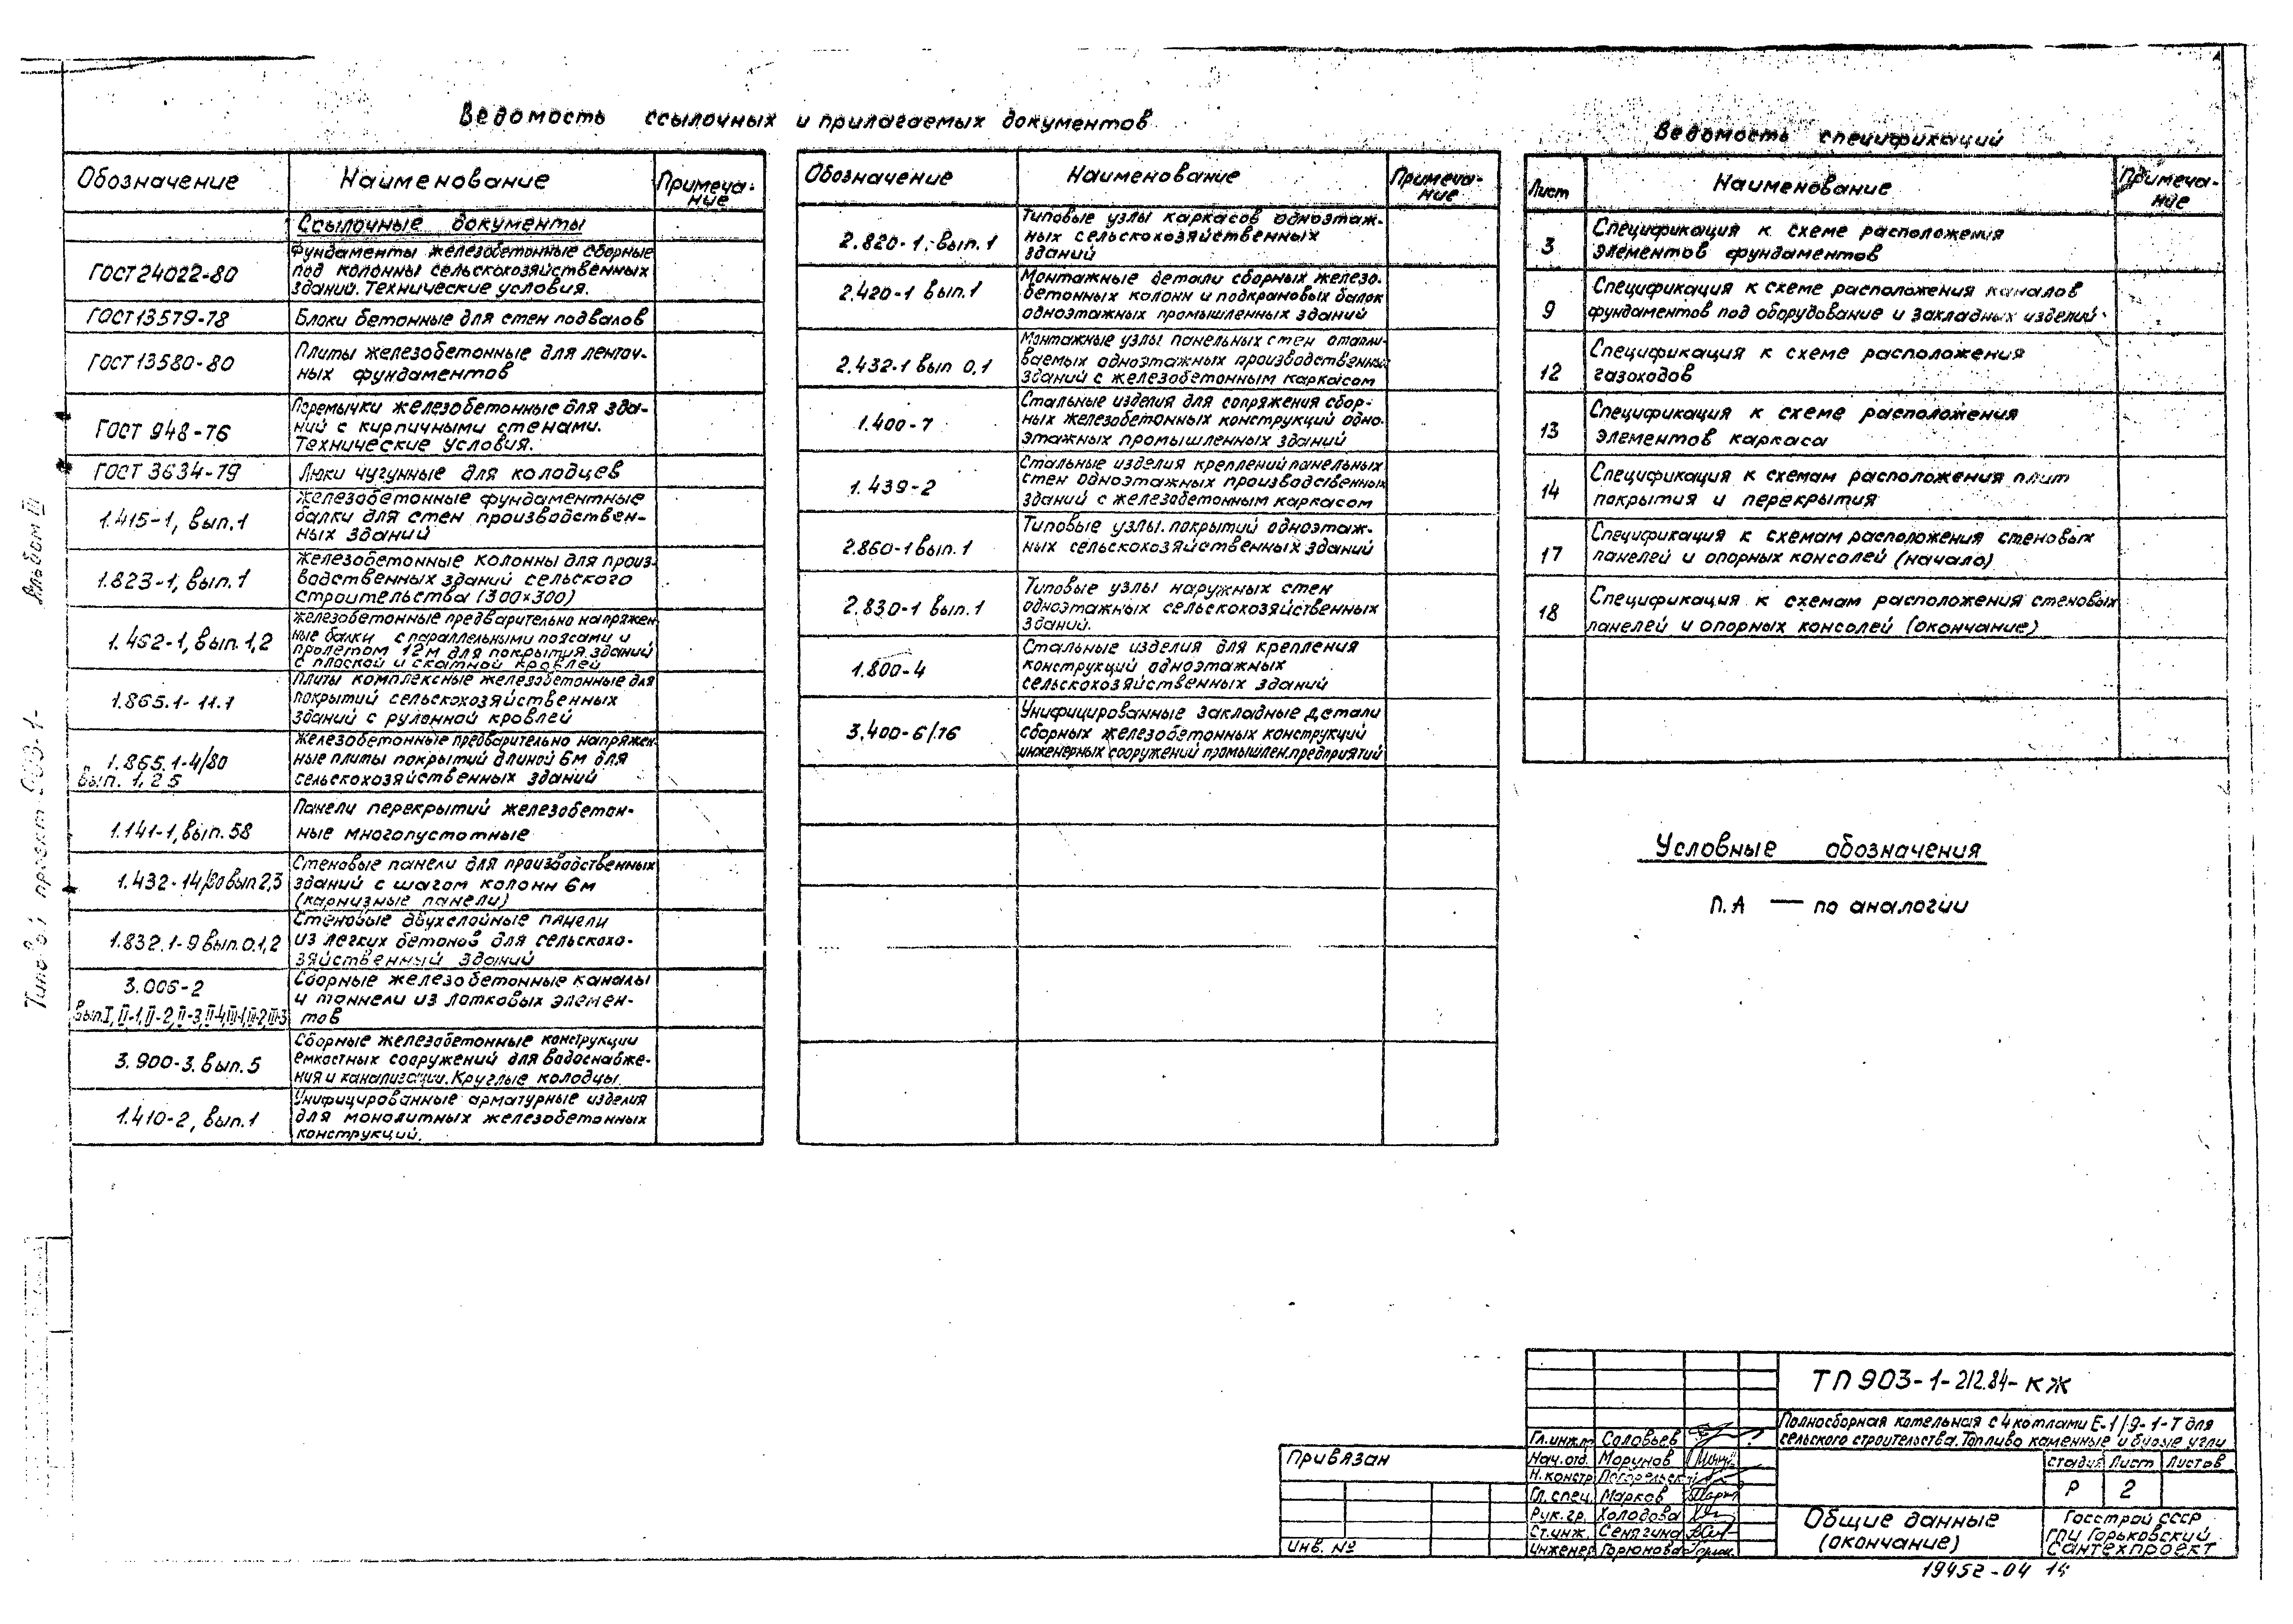 Ведомость ссылочных и прилагаемых документов
Обозначение
Наименование
Примеча-
ние
Ссылочные документы
ГОСТ 24022-80
Фундаменты железобетонные сборные
под колонны сельскохозяйственных
зданий. Технические условия.
ГОСТ 13579-78
Блоки бетонные для стен подвалов
ГОСТ 13580-80
Плиты железобетонные для ленточ-
ных фундаментов
ГОСТ 948-76
Перемычки железобетонные для зда-
ний с кирпичными стенами.
Технические условия.
ГОСТ 3634-79
Люки чугунные для колодцев
1.415-1, вып.1
Железобетонные фундаментные
балки для стен производствен-
ных зданий
1.823-1, вып.1
Железобетонные колонны для произ-
водственных зданий сельского
строительства (300×300)
1.462-1, вып.1,2
Железобетонные предварительно напряжен
ные балки с параллельными поясами и
пролетом 12м для покрытия зданий
с плоской и скатной кровлей
1.865.1-11.1
Плиты комплексные железобетонные для
покрытий сельскохозяйственных
зданий с рулонной кровлей
1.865.1-4/80
вып. 1,2 5
Железобетонные предварительно напряжен
ные плиты покрытий длиной 6м для
сельскохозяйственных зданий
1.141-1, вып.58
Панели перекрытий железобетон-
ные многопустотные
1.432-14/80 вып 2,3
Стеновые панели для производственных
зданий с шагом колонн 6м
(карнизные панели)
1.832.1-9 вып.0,1,2
Стеновые двухслойные панели
из легких бетонов для сельскохо-
зяйственный зданий
3.006-2
вып.I, II-1, II-2, II-3, II-4, III-1, III-2, III-3
Сборные железобетонные каналы
и тоннели из лотковых элемен-
тов
3.900-3. вып.5
Сборные железобетонные конструкции
емкостных сооружений для водоснабже-
ния и канализации. Круглые колодцы.
1.410-2, вып.1
Унифицированные арматурные изделия
для монолитных железобетонных
конструкций.
Обозначение
Наименование
Примеча-
ние
2.820-1. вып.1
Типовые узлы каркасов одноэтаж-
ных сельскохозяйственных
зданий
2.420-1 вып.1
Монтажные детали сборных железо-
бетонных колонн и подкрановых балок
одноэтажных промышленных зданий
2.432-1 вып 0,1
Монтажные узлы панельных стен отапли-
ваемых одноэтажных производственных
зданий с железобетонным каркасом
1.400-7
Стальные изделия для сопряжения сбор-
ных железобетонных конструкций одно-
этажных промышленных зданий
1.439-2
Стальные изделия креплений панельных
стен одноэтажных производственных
зданий с железобетонным каркасом
2.860-1 вып.1
Типовые узлы покрытий одноэтаж-
ных сельскохозяйственных зданий
2.830-1 вып.1
Типовые узлы наружных стен
одноэтажных сельскохозяйственных
зданий.
1.800-4
Стальные изделия для крепления
конструкций одноэтажных
сельскохозяйственных зданий
3.400-6/76
Унифицированные закладные детали
сборных железобетонных конструкций
инженерных сооружений промышлен.предприятий
Ведомость спецификаций
Лист
Наименование
Примеча-
ние
3
Спецификация к схеме расположения
элементов фундаментов
9
Спецификация к схеме расположения каналов
фундаментов под оборудование и закладных изделий
12
Спецификация к схеме расположения
газоходов
13
Спецификация к схеме расположения
элементов каркаса
14
Спецификация к схемам расположения плит
покрытия и перекрытия
17
Спецификация к схемам расположения стеновых
панелей и опорных консолей (начало)
18
Спецификация к схемам расположения стеновых
панелей и опорных консолей (окончание)
Условные обозначения
П.А — по аналогии
Альбом III
Типовой проект 903-1-
Привязан
Инв. №
Гл.инж.пр Соловьев
Нач.отд. Морунов
Н.контр
Гл.спец. Марков
Рук.гр. Холодова
Ст.инж. Сенягина
Инженер Горюнова
ТП 903-1-212.84-КЖ
Полносборная котельная с 4 котлами Е-1/9-1-Т для
сельского строительства. Топливо каменные и бурые угли
Стадия Лист Листов
Р 2
Общие данные
(окончание)
Госстрой СССР
ГПИ Горьковский
Сантехпроект
19452-04 14